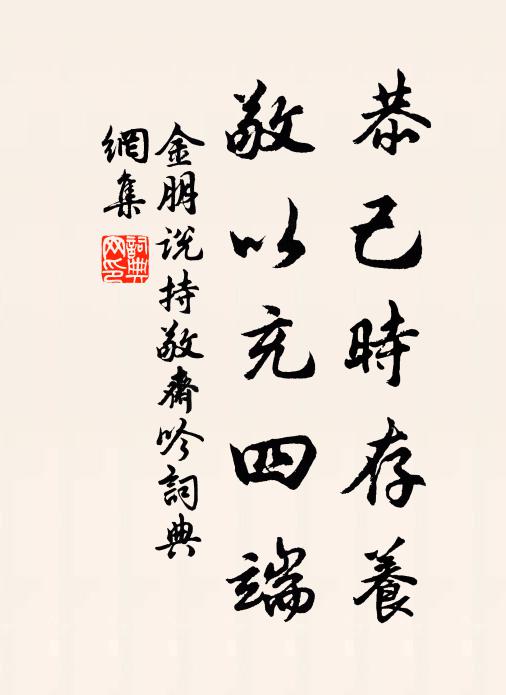 恭己時存養
敬以充四端
金朋说持敬齋吟詞典
網集
詞典
网印